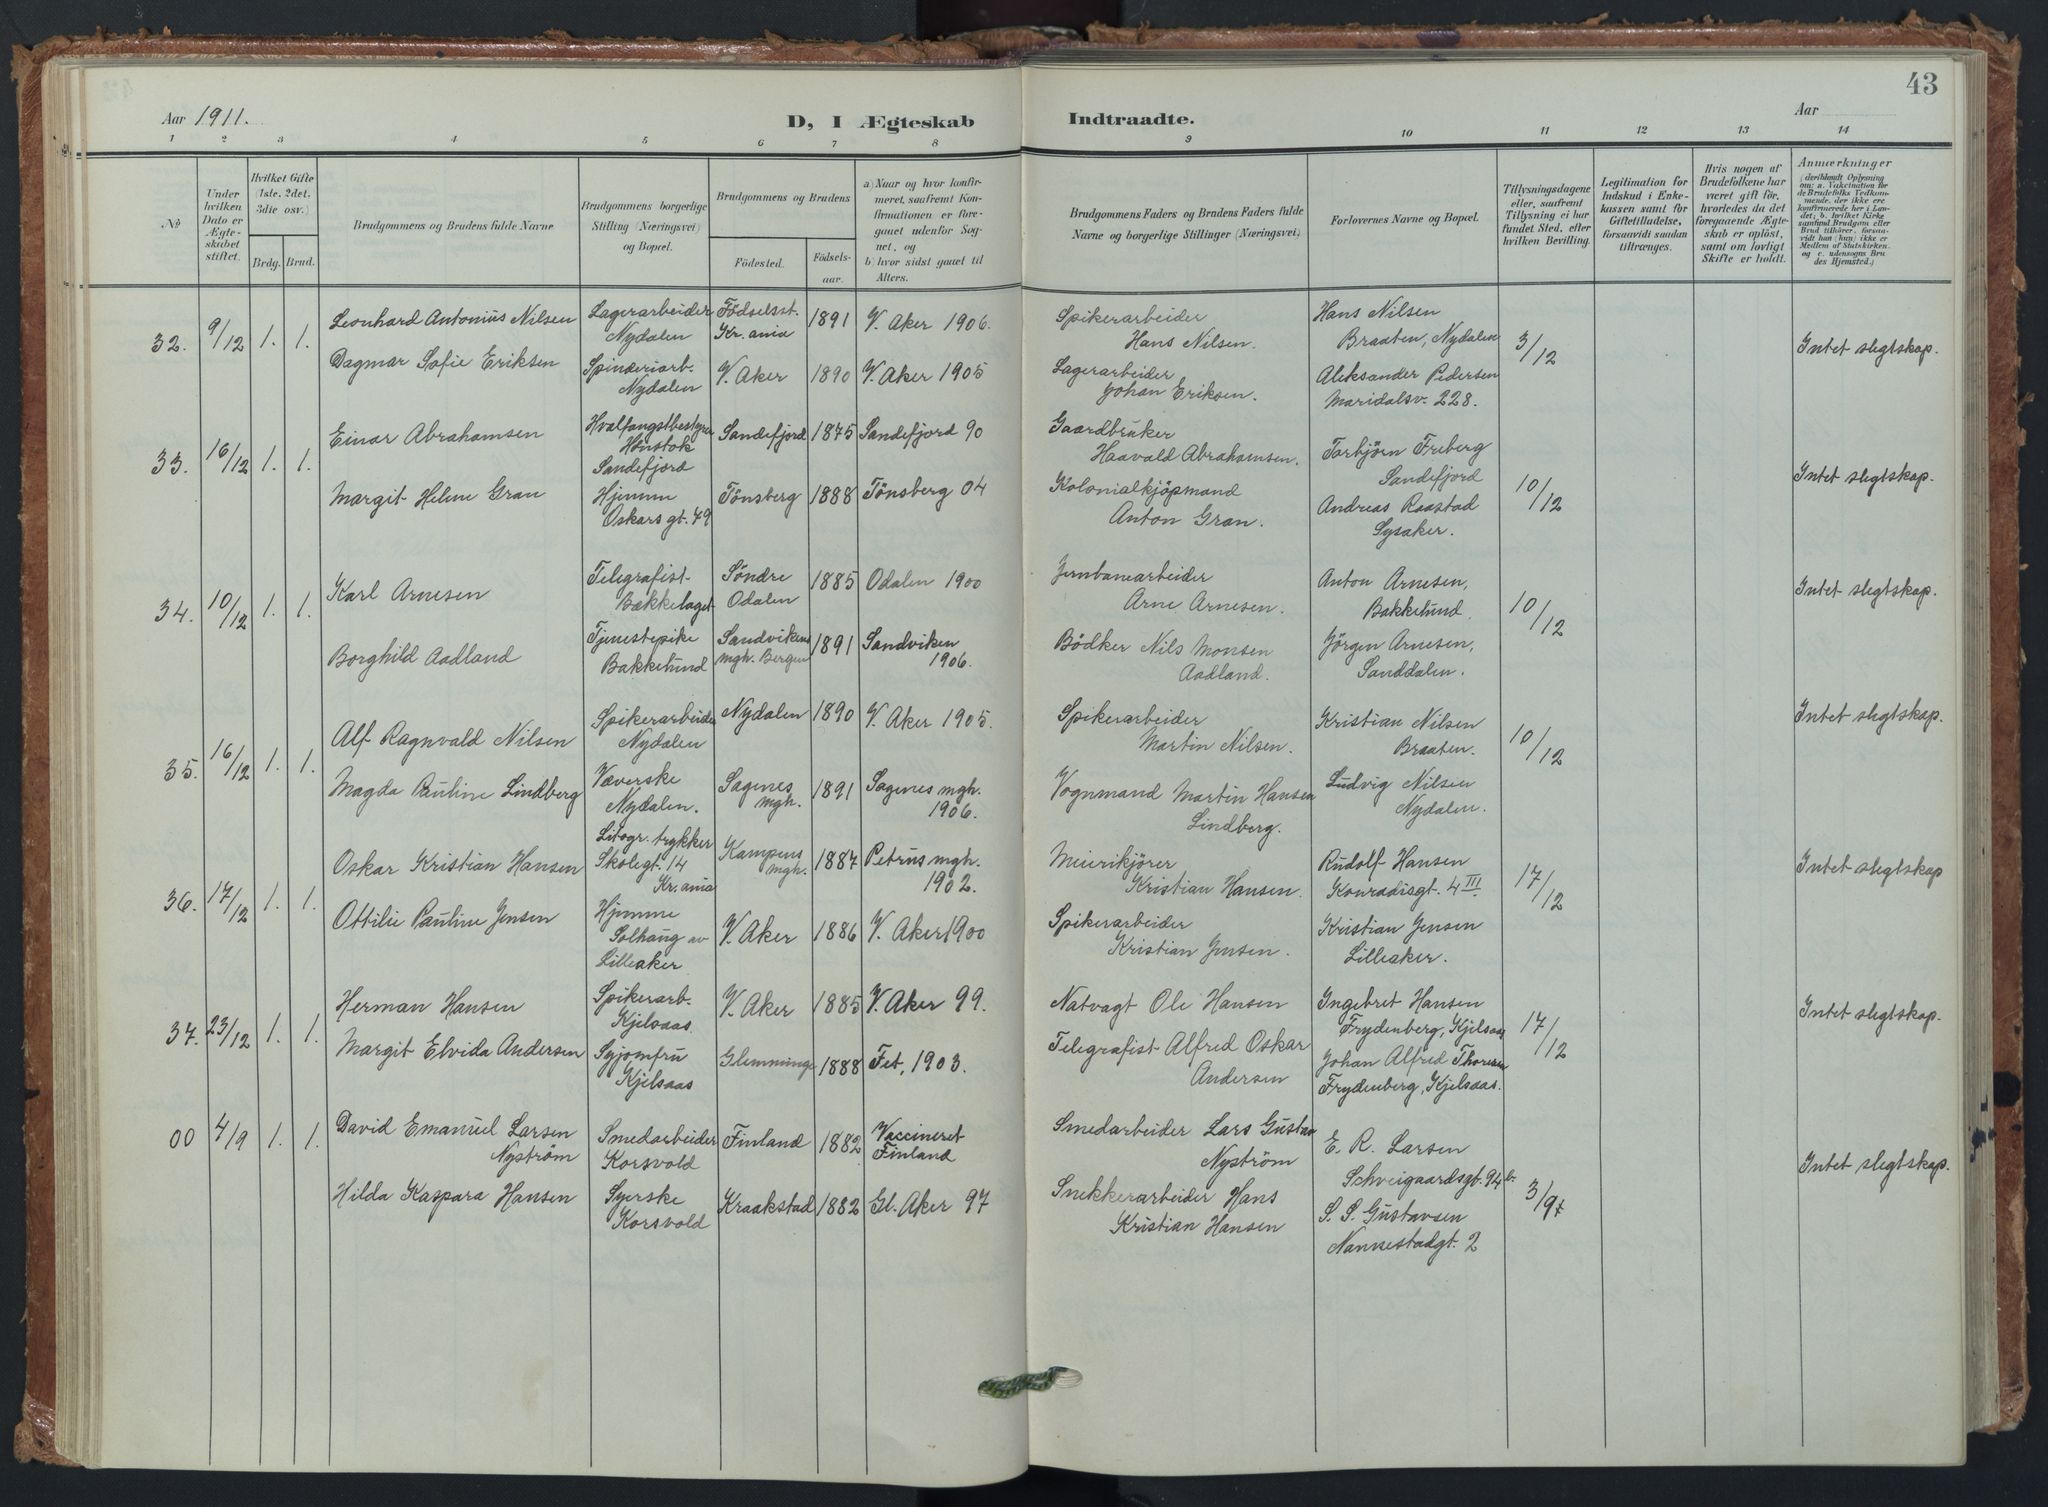 43
Aar 1911.
D, I Ægteskab
Indtraadte.
Aar
1 2 3 4 5 6 7 8 9 10 11 12 13 14
No
Under
hvilken
Dato er
Ægte-
skabet
stiftet.
Hvilket Gifte
(1ste, 2det,
3die osv.)
Brdg. Brud.
Brudgommens og Brudens fulde Navne
Brudgommens borgerlige
Stilling (Næringsvei)
og Bopæl.
Brudgommens og Brudens
Fødested.
Fødsels-
aar.
a) Naar og hvor konfir-
meret, saafremt Kon-
firmationen er fore-
gaaet udenfor Sog-
net, og
b) hvor sidst gaaet til
Alters.
Brudgommens Faders og Brudens Faders fulde
Navne og borgerlige Stillinger (Næringsvei)
Forlovernes Navne og Bopæl.
Tillysningsdagene
eller, saafremt
Tillysning ei har
fundet Sted, efter
hvilken Bevilling.
Legitimation for
Indskud i Enke-
kassen samt for
Giftetilladelse,
forsaavidt saadan
tiltrænges.
Hvis nogen af
Brudefolkene har
været gift før,
hvorledes da det
foregaaende Ægte-
skab er opløst,
samt om lovligt
Skifte er holdt.
Anmærkninger
(deriblandt Oplysning
om: a. Vakcination for
de Brudefolks Vedkom-
mende, der ikke ere
konfirmerede her i Lan-
det; b. hvilket Kirke
samfund Brudgom eller
Brud tilhører, forsaa-
vidt han (hun) ikke er
Medlem af Statskirken.
og c. udensogns Bru
des Hjemsted.)
32. 9/12 1. 1.
Leonhard Antonius Nilsen
Lagerarbeider
Nydalen
Födselsst.
Kr.ania
1891 V. Aker 1906.
Spikerarbeider
Hans Nilsen.
Hans Nilsen
Braaten, Nydalen
3/12
Intet slegtskap.
Dagmar Sofie Eriksen
Spinderiarb.
Nydalen
V. Aker 1890 V. Aker 1905
Lagerarbeider
Johan Eriksen.
Aleksander Pedersen
Maridalsv. 228.
33. 16/12 1. 1.
Einar Abrahamsen
Hvalfangstbestyrer
Sandefjord
Sandefjord 1875 Sandefjord 90
Gaardbruker
Haavald Abrahamsen.
Torbjörn Freberg
Sandefjord
10/12
Intet slegtskap.
Margit Helene Gran
Hjemme
Oskars gt. 49
Tönsberg 1888 Tönsberg 04
Kolonialkjöpmand
Anton Gran.
Andreas Raastad
Lysaker.
34. 10/12 1. 1.
Karl Arnesen
Telegrafist
Bækkelaget
Söndre
Odalen
1885 Odalen 1900
Jernbanearbeider
Arne Arnesen.
Anton Arnesen,
Bakkelund.
10/12
Intet slegtskap.
Borghild Aadland
Tjenestepike
Bakkelund
Sandvikens
mgh. Bergen
1891 Sandviken
1906.
Bödker Nils Monsen
Aadland.
Jörgen Arnesen,
Sanddalen.
35. 16/12 1. 1.
Alf Ragnvald Nilsen
Spikerarbeider
Nydalen
Nydalen 1890 V. Aker 1905.
Spikerarbeider
Martin Nilsen.
Kristian Nilsen
Braaten.
10/12
Intet slegtskap.
Magda Pauline Lindberg
Væverske
Nydalen.
Sagenes
mgh.
1891 Sagenes mgh.
1906.
Vognmand Martin Hansen
Lindberg.
Ludvig Nilsen
Nydalen.
36. 17/12 1. 1.
Oskar Kristian Hansen
Litogr. trykker
Skolegt. 14
Kr.ania
Kampens
mgh.
1887 Petrus mgh.
1902.
Meierikjörer
Kristian Hansen.
Rudolf Hansen
Konradisgt. 4 III.
17/12
Intet slegtskap
Ottilie Pauline Jensen
Hjemme
Solhaug av
Lilleaker
V. Aker 1886 V. Aker 1900
Spikerarbeider
Kristian Jensen.
Kristian Jensen
Lilleaker.
37. 23/12 1. 1.
Herman Hansen
Spikerarb.
Kjelsaas.
V. Aker 1885 V. Aker 99.
Natvagt Ole Hansen
Ingebret Hansen
Frydenberg, Kjelsaas
17/12
Intet slegtskap.
Margit Elvida Andersen
Syjomfru
Kjelsaas
Glemminge 1888 Fet, 1903.
Telegrafist Alfred Oskar
Andersen
Johan Alfred Thoresen
Frydenberg, Kjelsaas.
00 4/9 1. 1.
David Emanuel Larsen
Nyström
Smedarbeider
Korsvold
Finland 1882 Vaccineret
Finland
Smedarbeider Lars Gustav
Nyström
E. R. Larsen
Schveigaardsgt. 94 b.
3/9
Intet slegtskap.
Hilda Kaspara Hansen
Syerske
Korsvold
Kraakstad 1882 Gl. Aker 97
Snekkerarbeider Hans
Kristian Hansen
S. S. Gustavsen
Nannestadgt. 2